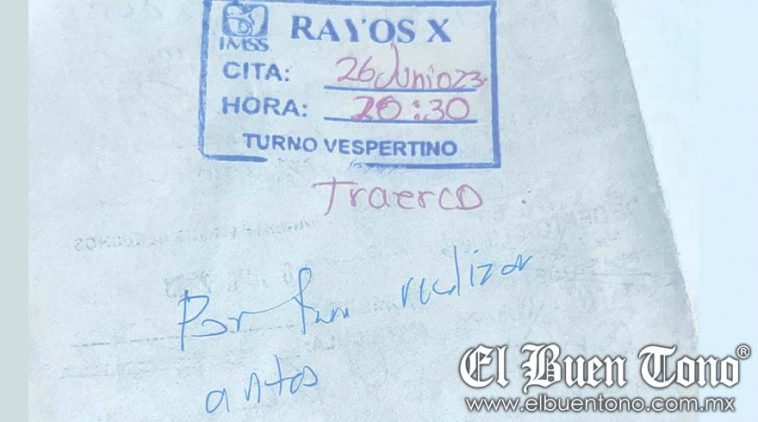 IMSS
RAYOS X
CITA: 26 Junio 23
HORA: 20:30
TURNO VESPERTINO
Traer CD
Por favor realizar
antes
El Buen Tono®
www.elbuentono.com.mx